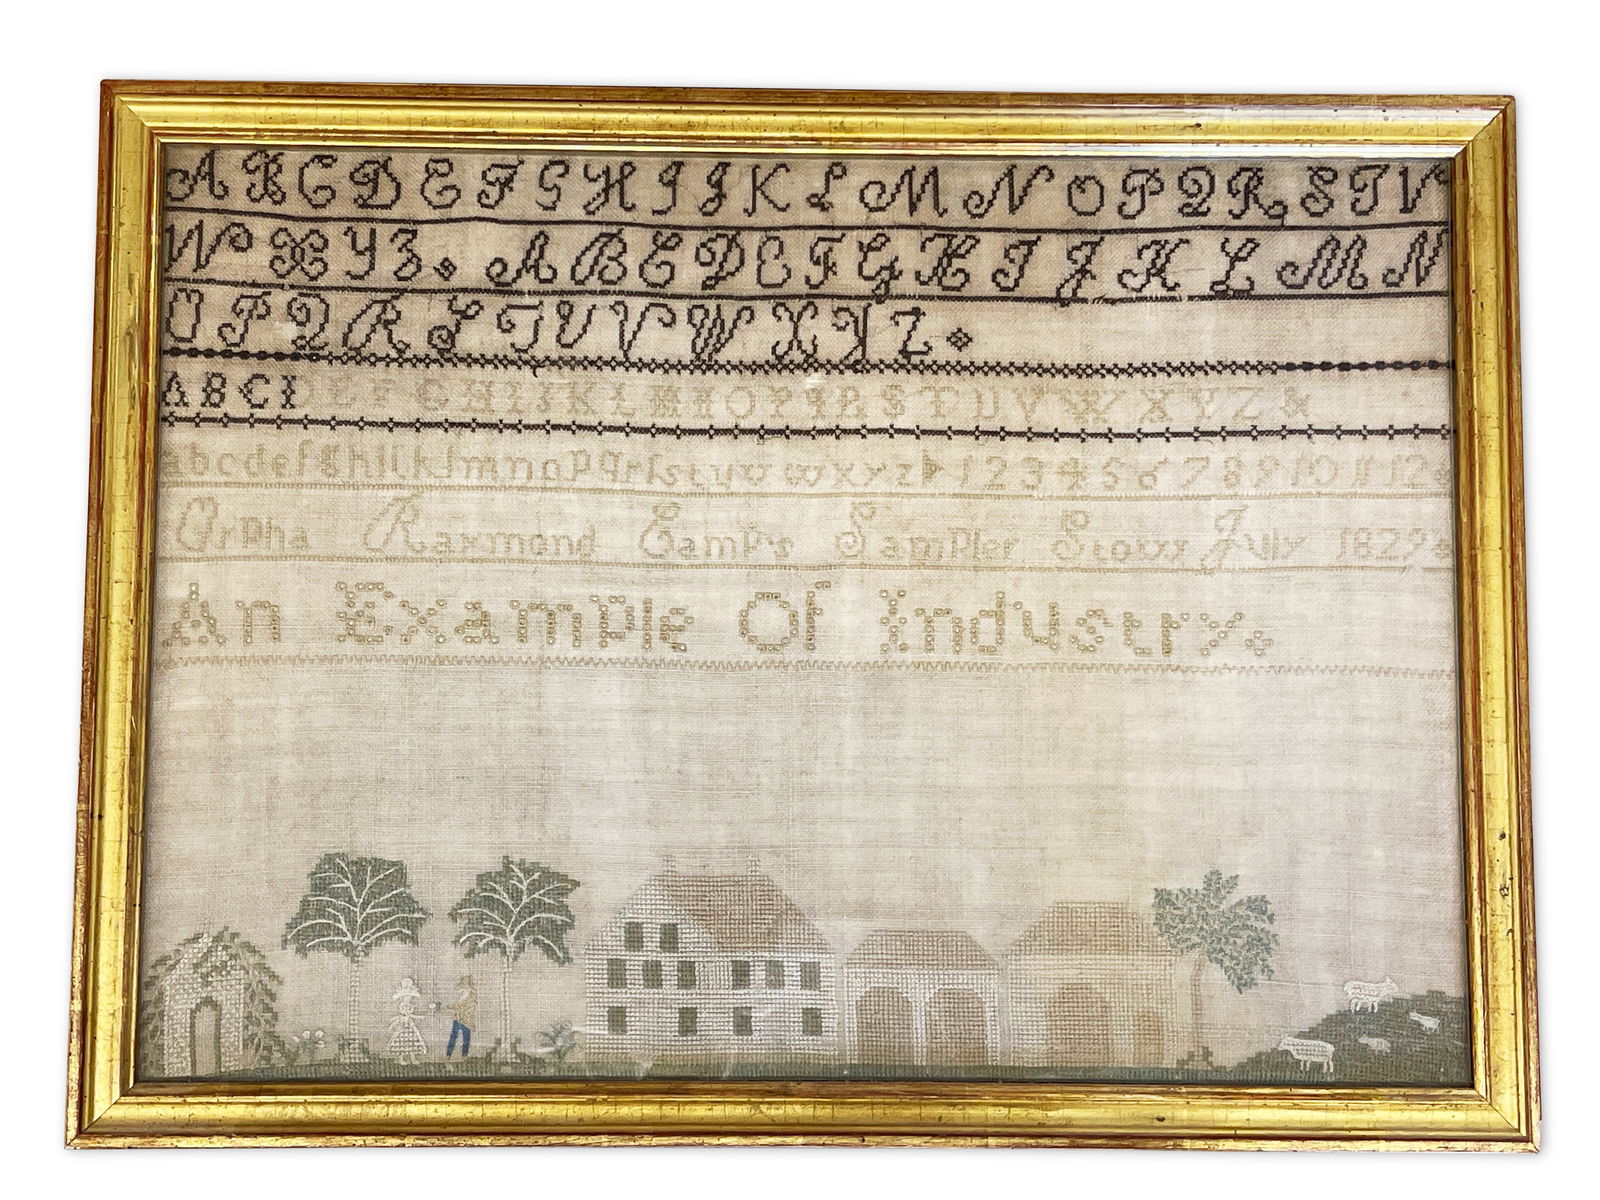 A B C D E F G H I J K L M N O P Q R S T V
W X Y Z A B C D E F G H I J K L M N
O P Q R S T U V W X Y Z
A B C D E F G H I J K L M N O P Q R S T U V W X Y Z &
a b c d e f g h i j k l m n o p q r ſ s t u v w x y z 1 2 3 4 5 6 7 8 9 10 11 12
Orpha Raymond Camp's Sampler Stow July 1829
An Example Of Industry